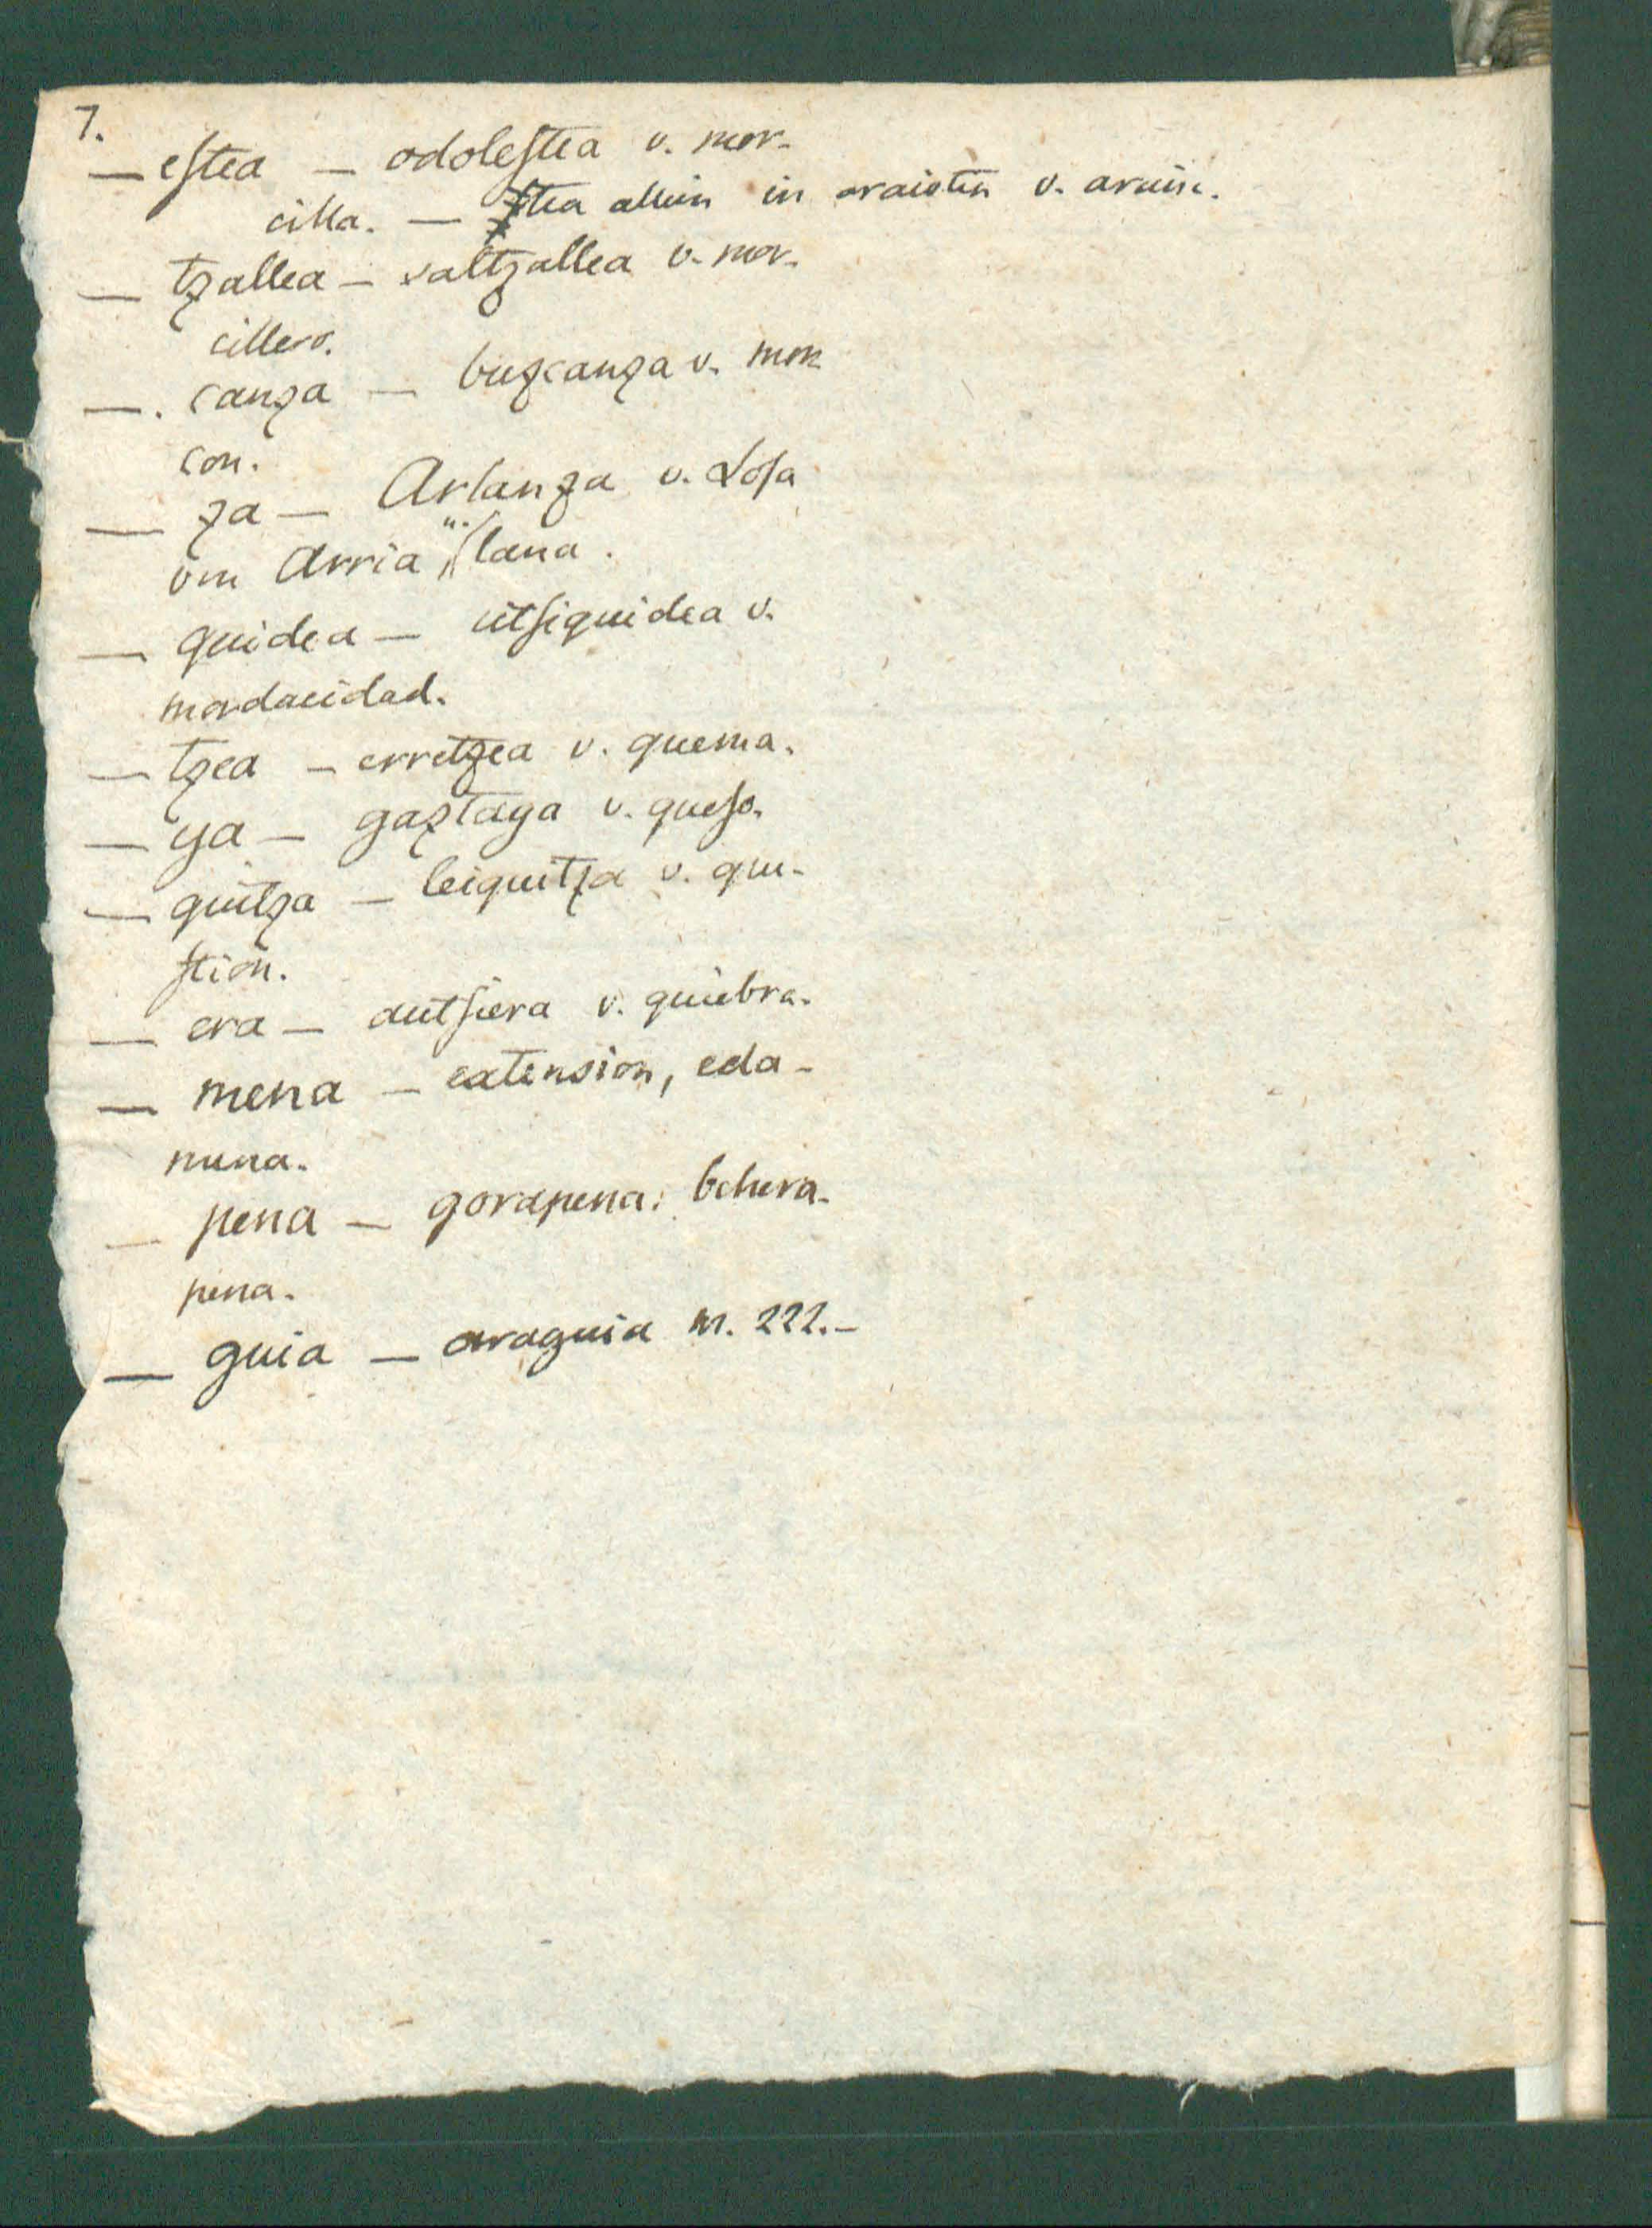 7.
— estea — odolestea v. mor-
cilla. — stea allein in araistea v. arain.
— tzallea — saltzallea v. mor-
cillero.
—. canza — buzcanza v. mor
con.
— za — Arlanza v. Losa
von Arria u. lana.
— quidea — utsiquidea v.
mordacidad.
— tzea — erretzea v. quema.
— ya — gaztaya v. queso.
— quitza — leiquitza v. que-
stion.
— era — autsiera v. quiebra.
— mena — extension, eda-
mena.
— pena — gorapena: behera-
pena.
— guia — araguia M. 222.—